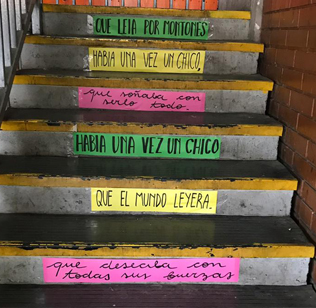 QUE LEÍA POR MONTONES
HABÍA UNA VEZ UN CHICO,
que soñaba con
serlo todo.
HABÍA UNA VEZ UN CHICO
QUE EL MUNDO LEYERA.
que deseaba con
todas sus fuerzas